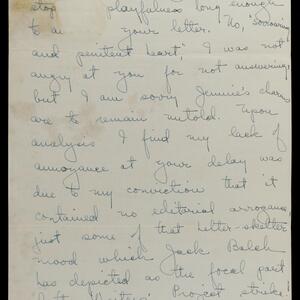 stop playfulness long enough
to an your letter. No, "sorrowing
and penitent heart," I was not
angry at you for not answering,
but I am sorry Jennie's charms
are to remain untold. Upon
analysis I find my lack of
annoyance at your delay was
due to my conviction that it
contained no editorial arrogance,
just some of that helter-skelter
mood which Jack Balch
has depicted as the focal part
Writers' Project strike